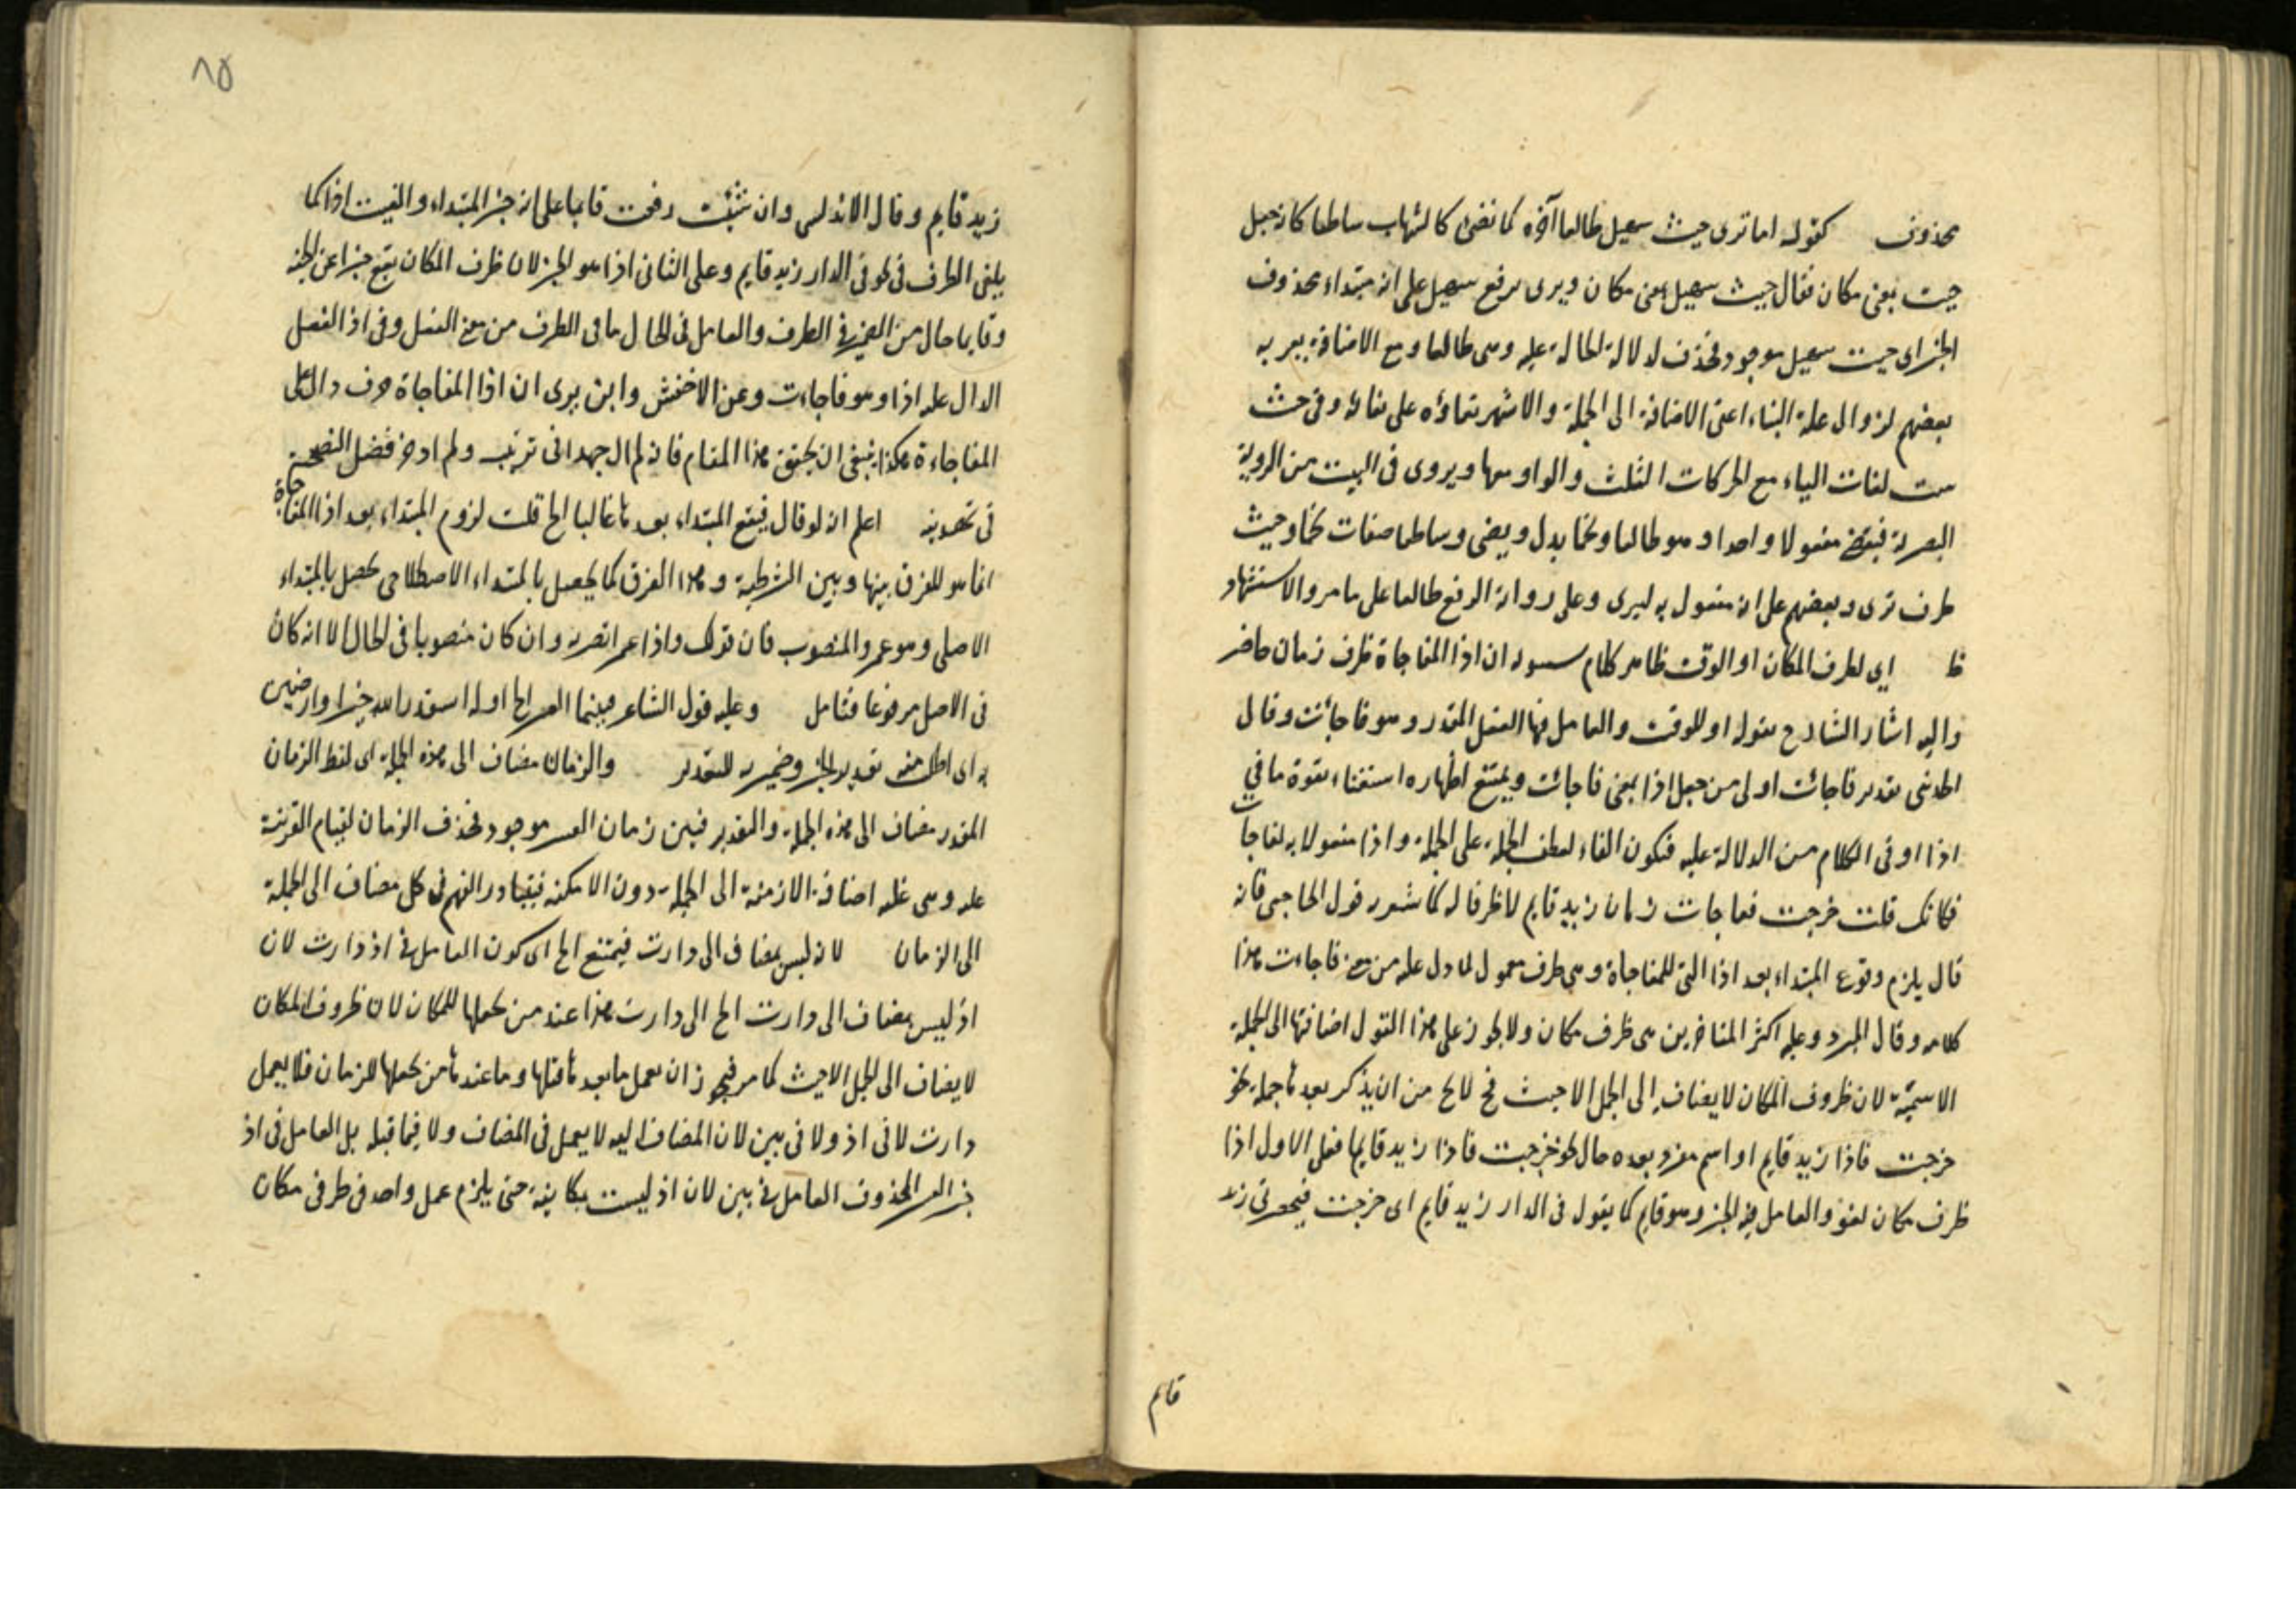 محذوف كقوله اما ترى حيث سهيل طالعا آخره نجما نضئ كالشهاب ساطعا كانه جعل
حيث بمعنى مكان فقال حيث سهيل بمعنى مكان ويرى برفع سهيل على انه مبتداء محذوف
الخبر اى حيث سهيل موجود فحذف لدلالة الحال عليه وهى طالعا ومع الاضافة يعربه
بعضهم لزوال علة البناء اعنى الاضافة الى الجملة والاشهر بقاؤه على بنائه وفى حيث
ست لغات الياء مع الحركات الثلث والواو معها ويروى فى البيت من الروية
البصرية فيقتضى مفعولا واحدا وهو طالعا ونجما بدل ويضى وساطعا صفات نجما وحيث
ظرف ترى وبعضهم على انه مفعول به ليرى وعلى رواية الرفع طالعا على ما مر والاستشهاد
ظ اى لظرف المكان او الوقت ظاهر كلام سيبويه ان اذا المفاجاة ظرف زمان حاضر
واليه اشار الشارح بقوله او للوقت والعامل فيها الفعل المقدر وهو فاجأت وقال
الحديثى تقدير فاجأت اولى من جعل اذا بمعنى فاجأت ويمتنع اظهاره استغناء بقوة ما فى
اذا او فى الكلام من الدلالة عليه فيكون الفاء لعطف الجملة على الجملة واذا مفعولا به لفاجأت
فكانك قلت خرجت ففاجات زمان زيد قايم لا ظرفا له كما يشعر به قول الحاجبى فانه
قال يلزم وقوع المبتداء بعد اذا التى للمفاجاة وهى ظرف معمول لما دل عليه من معنى فاجاءت هذا
كلامه وقال المبرد وعليه اكثر المتاخرين هى ظرف مكان ولا يجوز على هذا القول اضافتها الى الجملة
الاسمية لان ظروف المكان لا يضاف الى الجمل الا حيث فح لا يخ من ان يذكر بعدها جملة نحو
خرجت فاذا زيد قايم او اسم مفرد بعده حال نحو خرجت فاذا زيد قايما فعلى الاول اذا
ظرف مكان لغو والعامل فيه الخبر وهو قايم كما يقول فى الدار زيد قايم اى خرجت فبحضرتى زيد
قايم
٨٥
زيد قايم وقال الاندلسى وان شئت رفعت قايما على انه خبر المبتداء والغيت اذا كما
يلغى الظرف فى نحو فى الدار زيد قايم وعلى الثانى اذا هو الخبر لان ظرف المكان يقع خبرا عن الجثة
وقايما حال من الضمير فى الظرف والعامل فى الحال ما فى الظرف من معنى الفعل وفى اذا الفعل
الدال عليه اذا وهو فاجاءت وعن الاخفش وابن برى ان اذا المفاجاة حرف دال على
المفاجاءة هكذا ينبغى ان يحقق هذا المقام فانى لم ال جهدا فى ترتيب ولم ادخر فضل النصيحة
فى تهذيبه اعلم انه لو قال فيقع المبتداء بعدها غالبا الخ قلت لزوم المبتداء بعد اذا المفاجاة
انما هو للفرق بينها وبين الشرطية وهذا الفرق كما يحصل بالمبتداء الاصطلاحى يحصل بالمبتداء
الاصلى وهو عمر والمنصوب فان قولك واذا عمرا تضربه وان كان منصوبا فى الحال الا انه كان
فى الاصل مرفوعا فتامل وعليه قول الشاعر فبينما العسر الخ اوله استقدر الله خيرا وارضين
به اى اطلب منه تقدير الخير وضمير به للتقدير والزمان مضاف الى هذه الجملة اى لفظ الزمان
المقدر مضاف الى هذه الجملة والتقدير فبين زمان العسر موجود فحذف الزمان لقيام القرينة
عليه وهى غلبة اضافة الازمنة الى الجملة دون الامكنة فيتبادر الفهم فى كل مضاف الى الجملة
الى الزمان لانه ليس بمضاف الى دارت فيمتنع الخ اى كون العامل فى اذ دارت لان
اذ ليس بمضاف الى دارت الخ الى دارت هذا عند من يجعلها للمكان لان ظروف المكان
لا يضاف الى الجمل الا حيث كما مر فيجوز ان يعمل ما بعدها قبلها وما عندها من يجعلها للزمان فلا يعمل
دارت لا فى اذ ولا فى بين لان المضاف اليه لا يعمل فى المضاف ولا فيما قبله بل العامل فى اذ
خبر العسر المحذوف العامل فى بين لان اذ ليست مكانية حتى يلزم عمل واحد فى ظرفى مكان